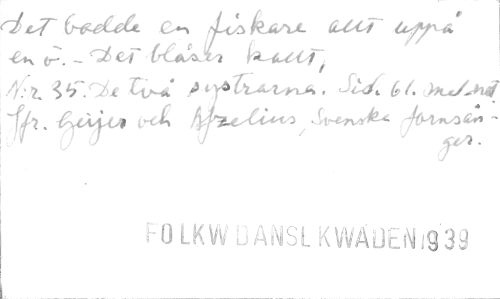 Det bodde en fiskare allt uppå
en ö. - Det blåser kallt,
N:r 35. De två systrarna. Sid. 61. mel. not
Jfr. Geijer och Afzelius, Svenska fornsån-
ger.
FOLKW DANSLKWADEN 1939